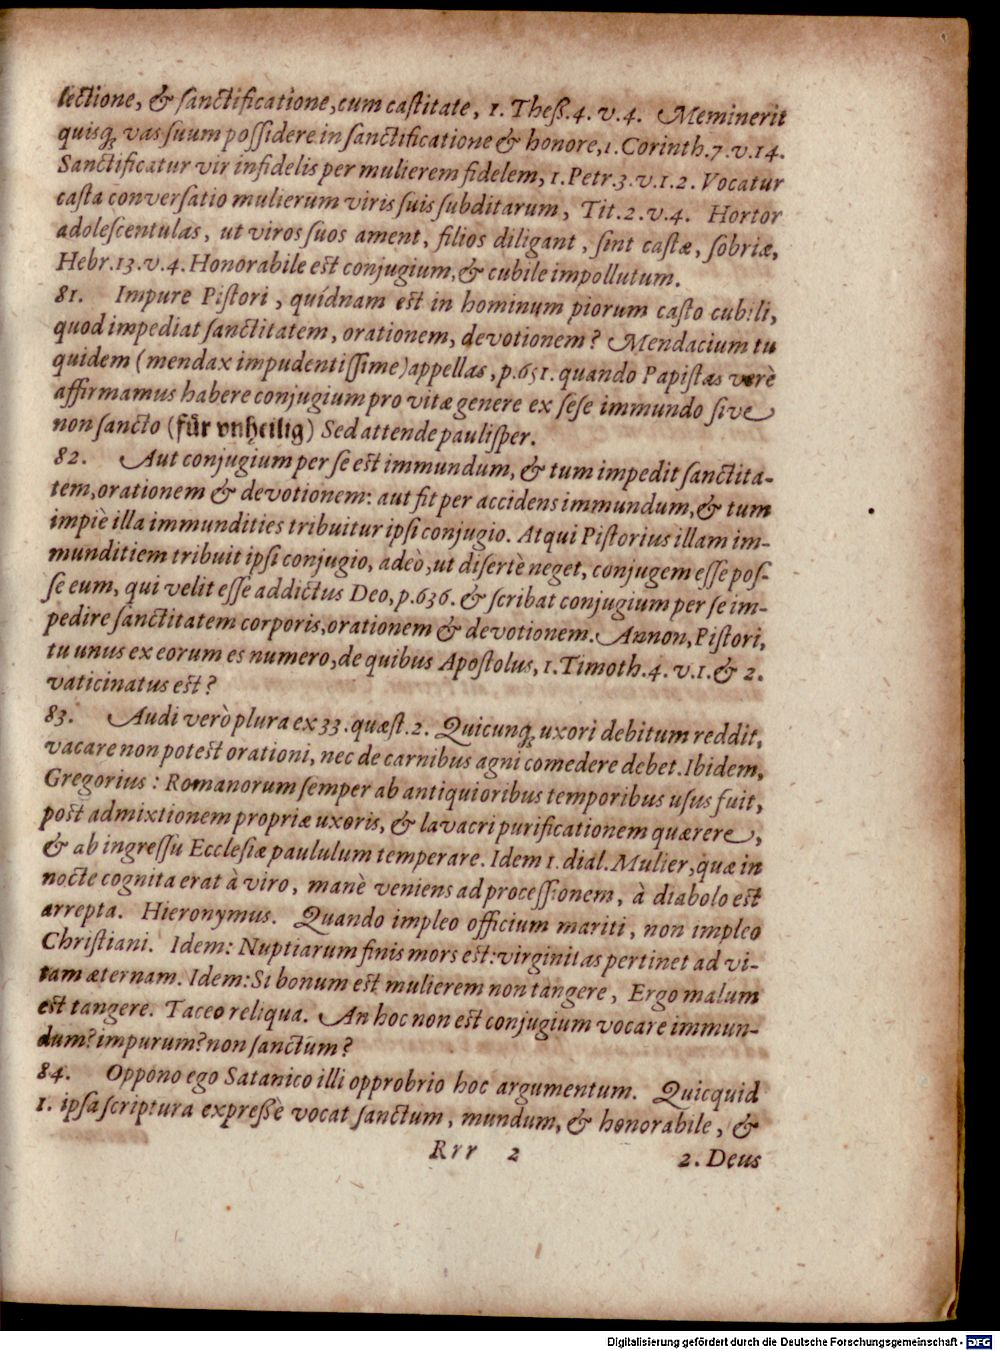 lectione, & ſanctificatione, cum caſtitate, 1. Theß. 4. v. 4. Meminerit
quisq; vas ſuum poſſidere in ſanctificatione & honore, 1. Corinth. 7. v. 14.
Sanctificatur vir infidelis per mulierem fidelem, 1. Petr. 3. v. 1. 2. Vocatur
caſta converſatio mulierum viris ſuis ſubditarum, Tit. 2. v. 4. Hortor
adoleſcentulas, ut viros ſuos ament, filios diligant, ſint caſtæ, ſobriæ,
Hebr. 13. v. 4. Honorabile eſt conjugium, & cubile impollutum.
81. Impure Piſtori, quídnam eſt in hominum piorum caſto cubili,
quod impediat ſanctitatem, orationem, devotionem? Mendacium tu
quidem (mendax impudentiſſime) appellas, p. 651. quando Papiſtas verè
affirmamus habere conjugium pro vitæ genere ex ſeſe immundo ſive
non ſancto (für vnheilig) Sed attende pauliſper.
82. Aut conjugium per ſe eſt immundum, & tum impedit ſanctita-
tem, orationem & devotionem: aut fit per accidens immundum, & tum
impiè illa immundities tribuitur ipſi conjugio. Atqui Piſtorius illam im-
munditiem tribuit ipſi conjugio, adeò, ut diſertè neget, conjugem eſſe poſ-
ſe eum, qui velit eſſe addictus Deo, p. 636. & ſcribat conjugium per ſe im-
pedire ſanctitatem corporis, orationem & devotionem. Annon, Piſtori,
tu unus ex eorum es numero, de quibus Apoſtolus, 1. Timoth. 4. v. 1. & 2.
vaticinatus eſt?
83. Audi verò plura ex 33. quæſt. 2. Quicunq; uxori debitum reddit,
vacare non poteſt orationi, nec de carnibus agni comedere debet. Ibidem,
Gregorius: Romanorum ſemper ab antiquioribus temporibus uſus fuit,
poſt admixtionem propriæ uxoris, & lavacri purificationem quærere,
& ab ingreſſu Eccleſiæ paululum temperare. Idem 1. dial. Mulier, quæ in
nocte cognita erat à viro, manè veniens ad proceſſionem, à diabolo eſt
arrepta. Hieronymus. Quando impleo officium mariti, non impleo
Chriſtiani. Idem: Nuptiarum finis mors eſt: virginitas pertinet ad vi-
tam æternam. Idem: Si bonum eſt mulierem non tangere, Ergo malum
eſt tangere. Taceo reliqua. An hoc non eſt conjugium vocare immun-
dum? impurum? non ſanctum?
84. Oppono ego Satanico illi opprobrio hoc argumentum. Quicquid
1. ipſa ſcriptura expreßè vocat ſanctum, mundum, & honorabile, &
Rrr 2 2. Deus
Digitalisierung gefördert durch die Deutsche Forschungsgemeinschaft - DFG